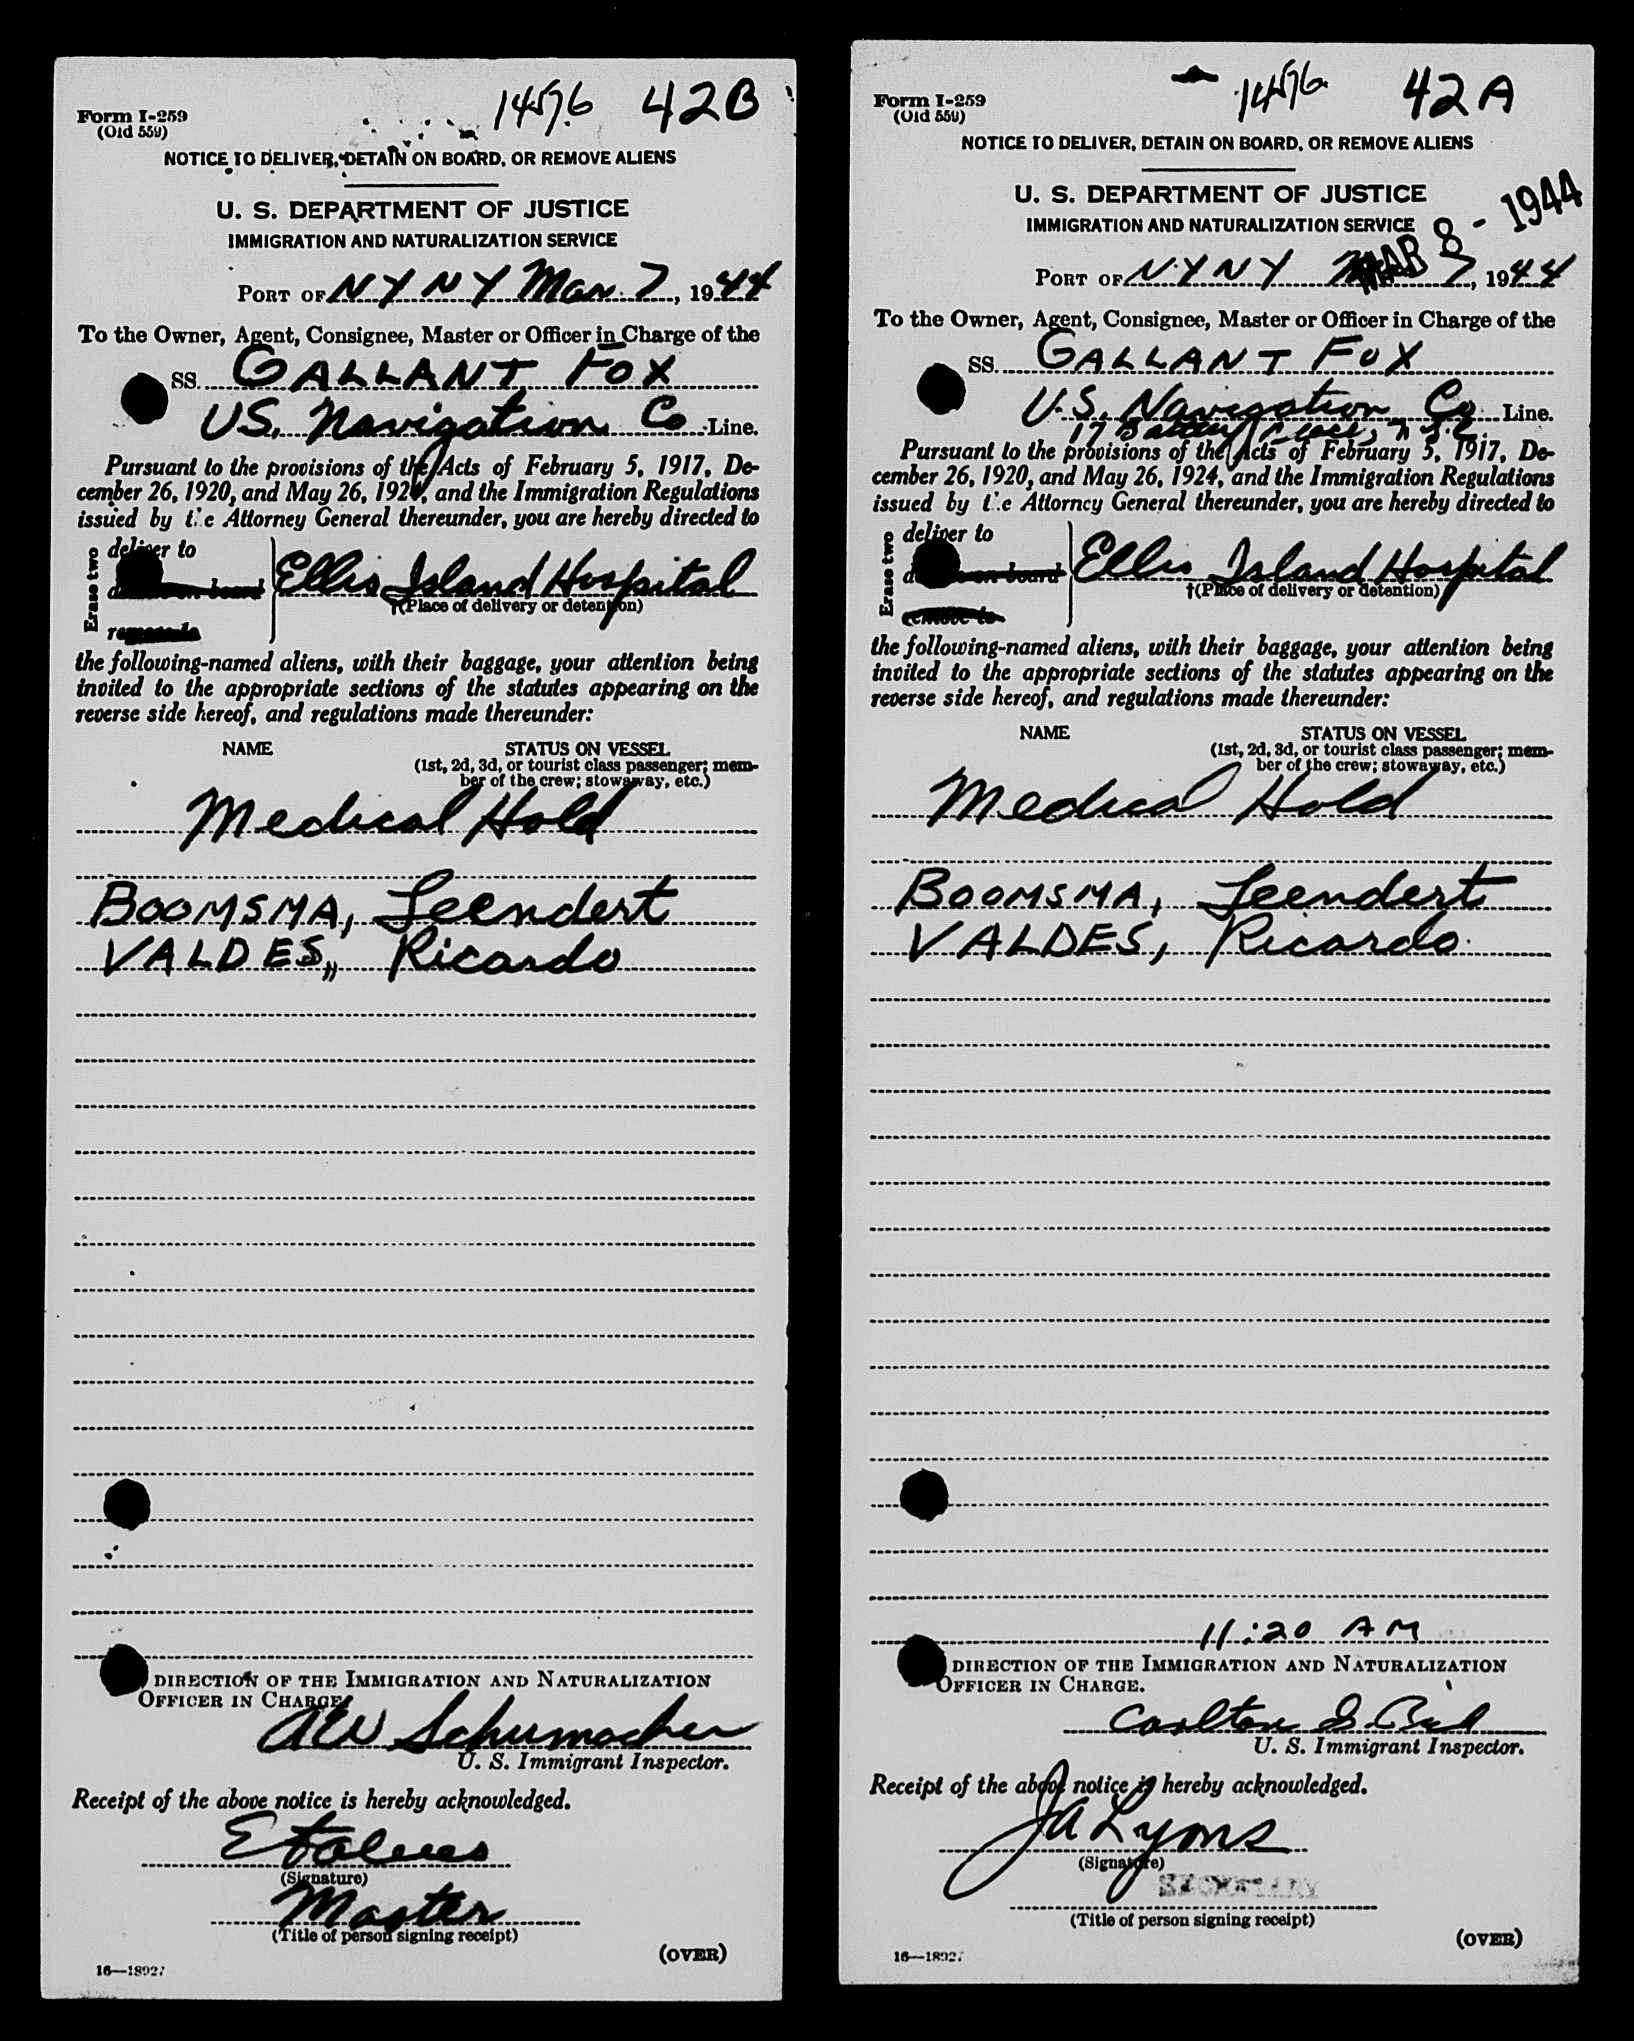 14576 42B
Form I-259
(Old 559)
NOTICE TO DELIVER, DETAIN ON BOARD, OR REMOVE ALIENS
U. S. DEPARTMENT OF JUSTICE
IMMIGRATION AND NATURALIZATION SERVICE
PORT OF N Y N Y Mar. 7, 1944
To the Owner, Agent, Consignee, Master or Officer in Charge of the
SS. GALLANT FOX
US. Navigation Co Line.
Pursuant to the provisions of the Acts of February 5, 1917, De-
cember 26, 1920, and May 26, 1924, and the Immigration Regulations
issued by the Attorney General thereunder, you are hereby directed to
Erase two
deliver to
on board
remove to
Ellis Island Hospital
†(Place of delivery or detention)
the following-named aliens, with their baggage, your attention being
invited to the appropriate sections of the statutes appearing on the
reverse side hereof, and regulations made thereunder:
NAME STATUS ON VESSEL
(1st, 2d, 3d, or tourist class passenger; mem-
ber of the crew; stowaway, etc.)
Medical Hold
BOOMSMA, Leendert
VALDES, Ricardo
DIRECTION OF THE IMMIGRATION AND NATURALIZATION
OFFICER IN CHARGE.
AW Schumacher
U. S. Immigrant Inspector.
Receipt of the above notice is hereby acknowledged.
(Signature)
Master
(Title of person signing receipt)
(OVER)
16—18927
14576 42A
Form I-259
(Old 559)
NOTICE TO DELIVER, DETAIN ON BOARD, OR REMOVE ALIENS
U. S. DEPARTMENT OF JUSTICE
IMMIGRATION AND NATURALIZATION SERVICE
MAR 8 - 1944
PORT OF N.Y N Y Mar 7, 1944
To the Owner, Agent, Consignee, Master or Officer in Charge of the
SS. GALLANT FOX
U.S. Navigation Co Line.
17 Battery Place, N.Y.C.
Pursuant to the provisions of the Acts of February 5, 1917, De-
cember 26, 1920, and May 26, 1924, and the Immigration Regulations
issued by the Attorney General thereunder, you are hereby directed to
Erase two
deliver to
on board
remove to
Ellis Island Hospital
†(Place of delivery or detention)
the following-named aliens, with their baggage, your attention being
invited to the appropriate sections of the statutes appearing on the
reverse side hereof, and regulations made thereunder:
NAME STATUS ON VESSEL
(1st, 2d, 3d, or tourist class passenger; mem-
ber of the crew; stowaway, etc.)
Medical Hold
BOOMSMA, Leendert
VALDES, Ricardo
11:20 AM
DIRECTION OF THE IMMIGRATION AND NATURALIZATION
OFFICER IN CHARGE.
Carlton
U. S. Immigrant Inspector.
Receipt of the above notice is hereby acknowledged.
JA Lyons
(Signature)
SECRETARY
(Title of person signing receipt)
(OVER)
16—18927